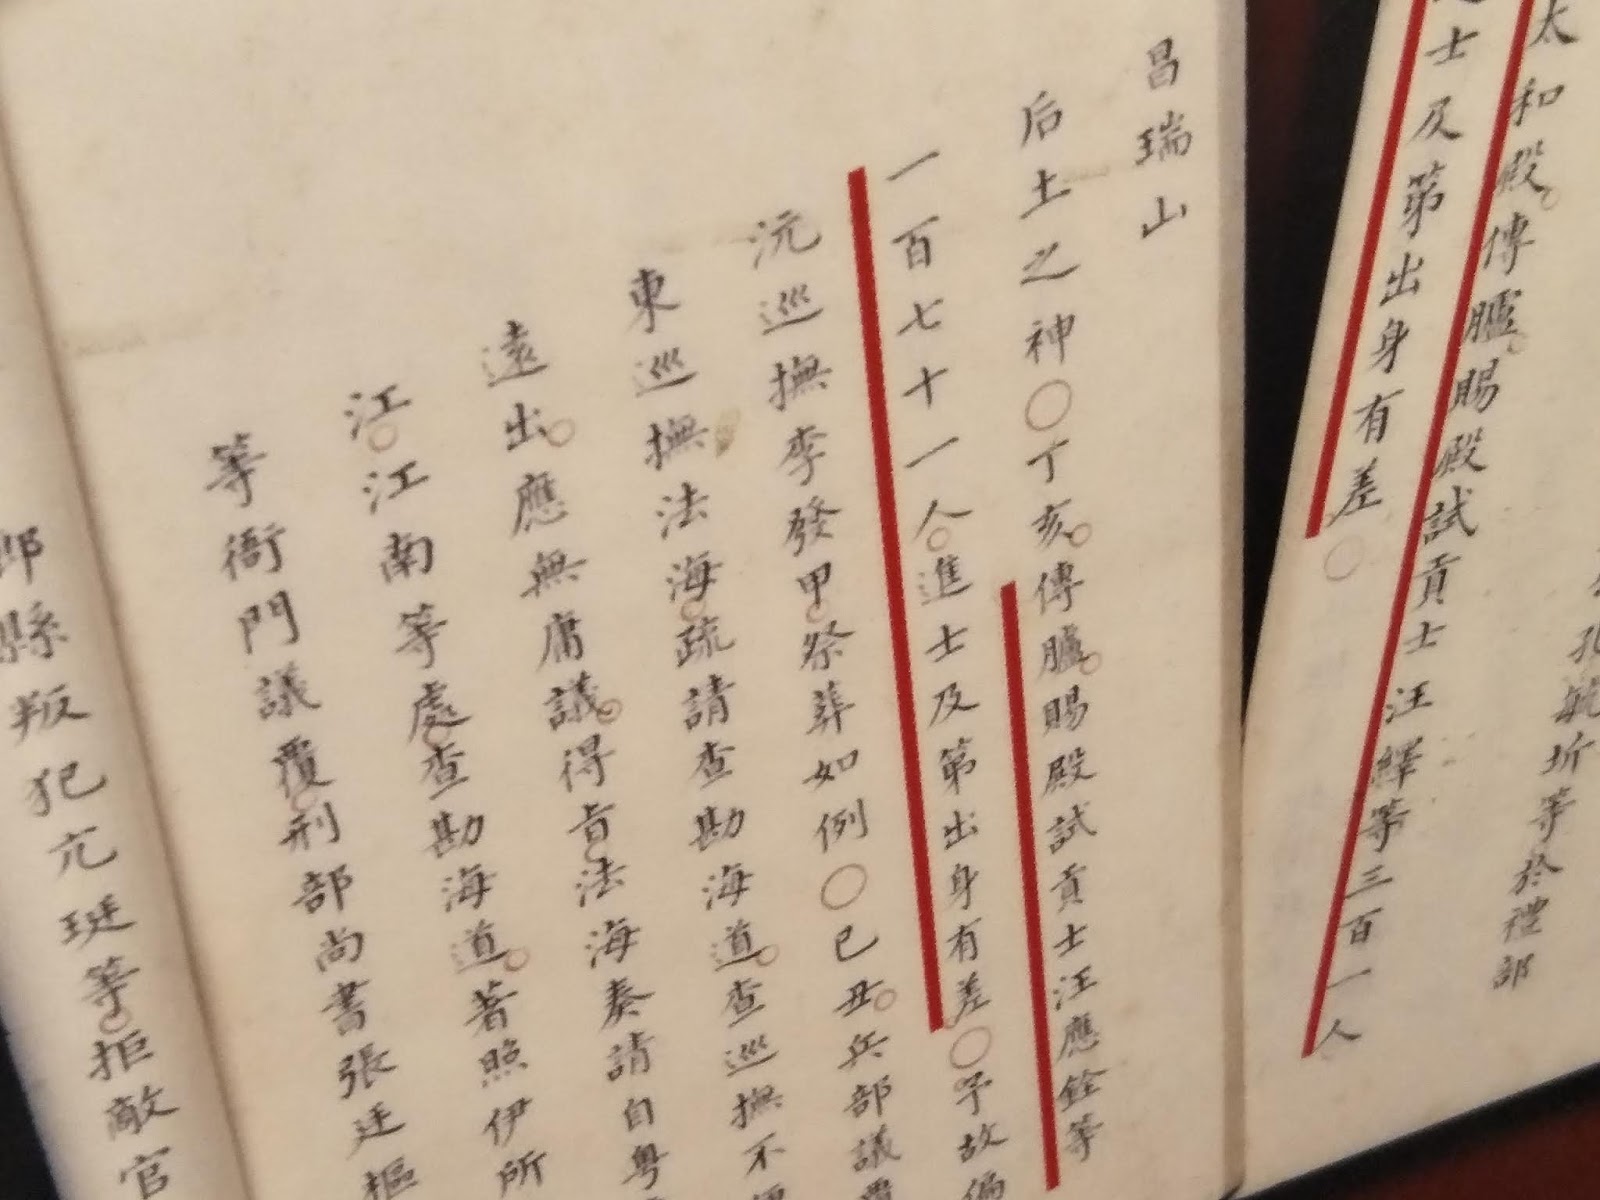 太和殿傳臚賜殿試貢士汪繹等三百一人
士及第出身有差○
孔毓圻等於禮部
昌瑞山
后土之神○丁亥傳臚賜殿試貢士汪應銓等
一百七十一人進士及第出身有差○予故偏
沅巡撫李發甲祭葬如例○己丑兵部議覆
東巡撫法海疏請查勘海道查巡撫不便
遠出應無庸議得旨法海奏請自粵
江江南等處查勘海道著照伊所
等衙門議覆刑部尚書張廷樞
縣叛犯亢珽等拒敵官